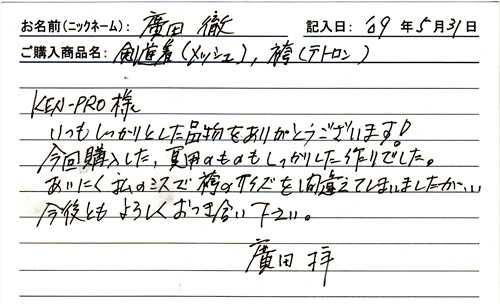 お名前(ニックネーム): 廣田 徹 記入日: '09年5月31日
ご購入商品名: 剣道着(メッシュ), 袴(テトロン)
KEN-PRO 様
いつもしっかりとした品物をありがとうございます!
今回購入した、夏用のものもしっかりした作りでした。
あいにく私のミスで袴のサイズを間違えてしまいましたが…
今後ともよろしくおつき合い下さい。
廣田 拝